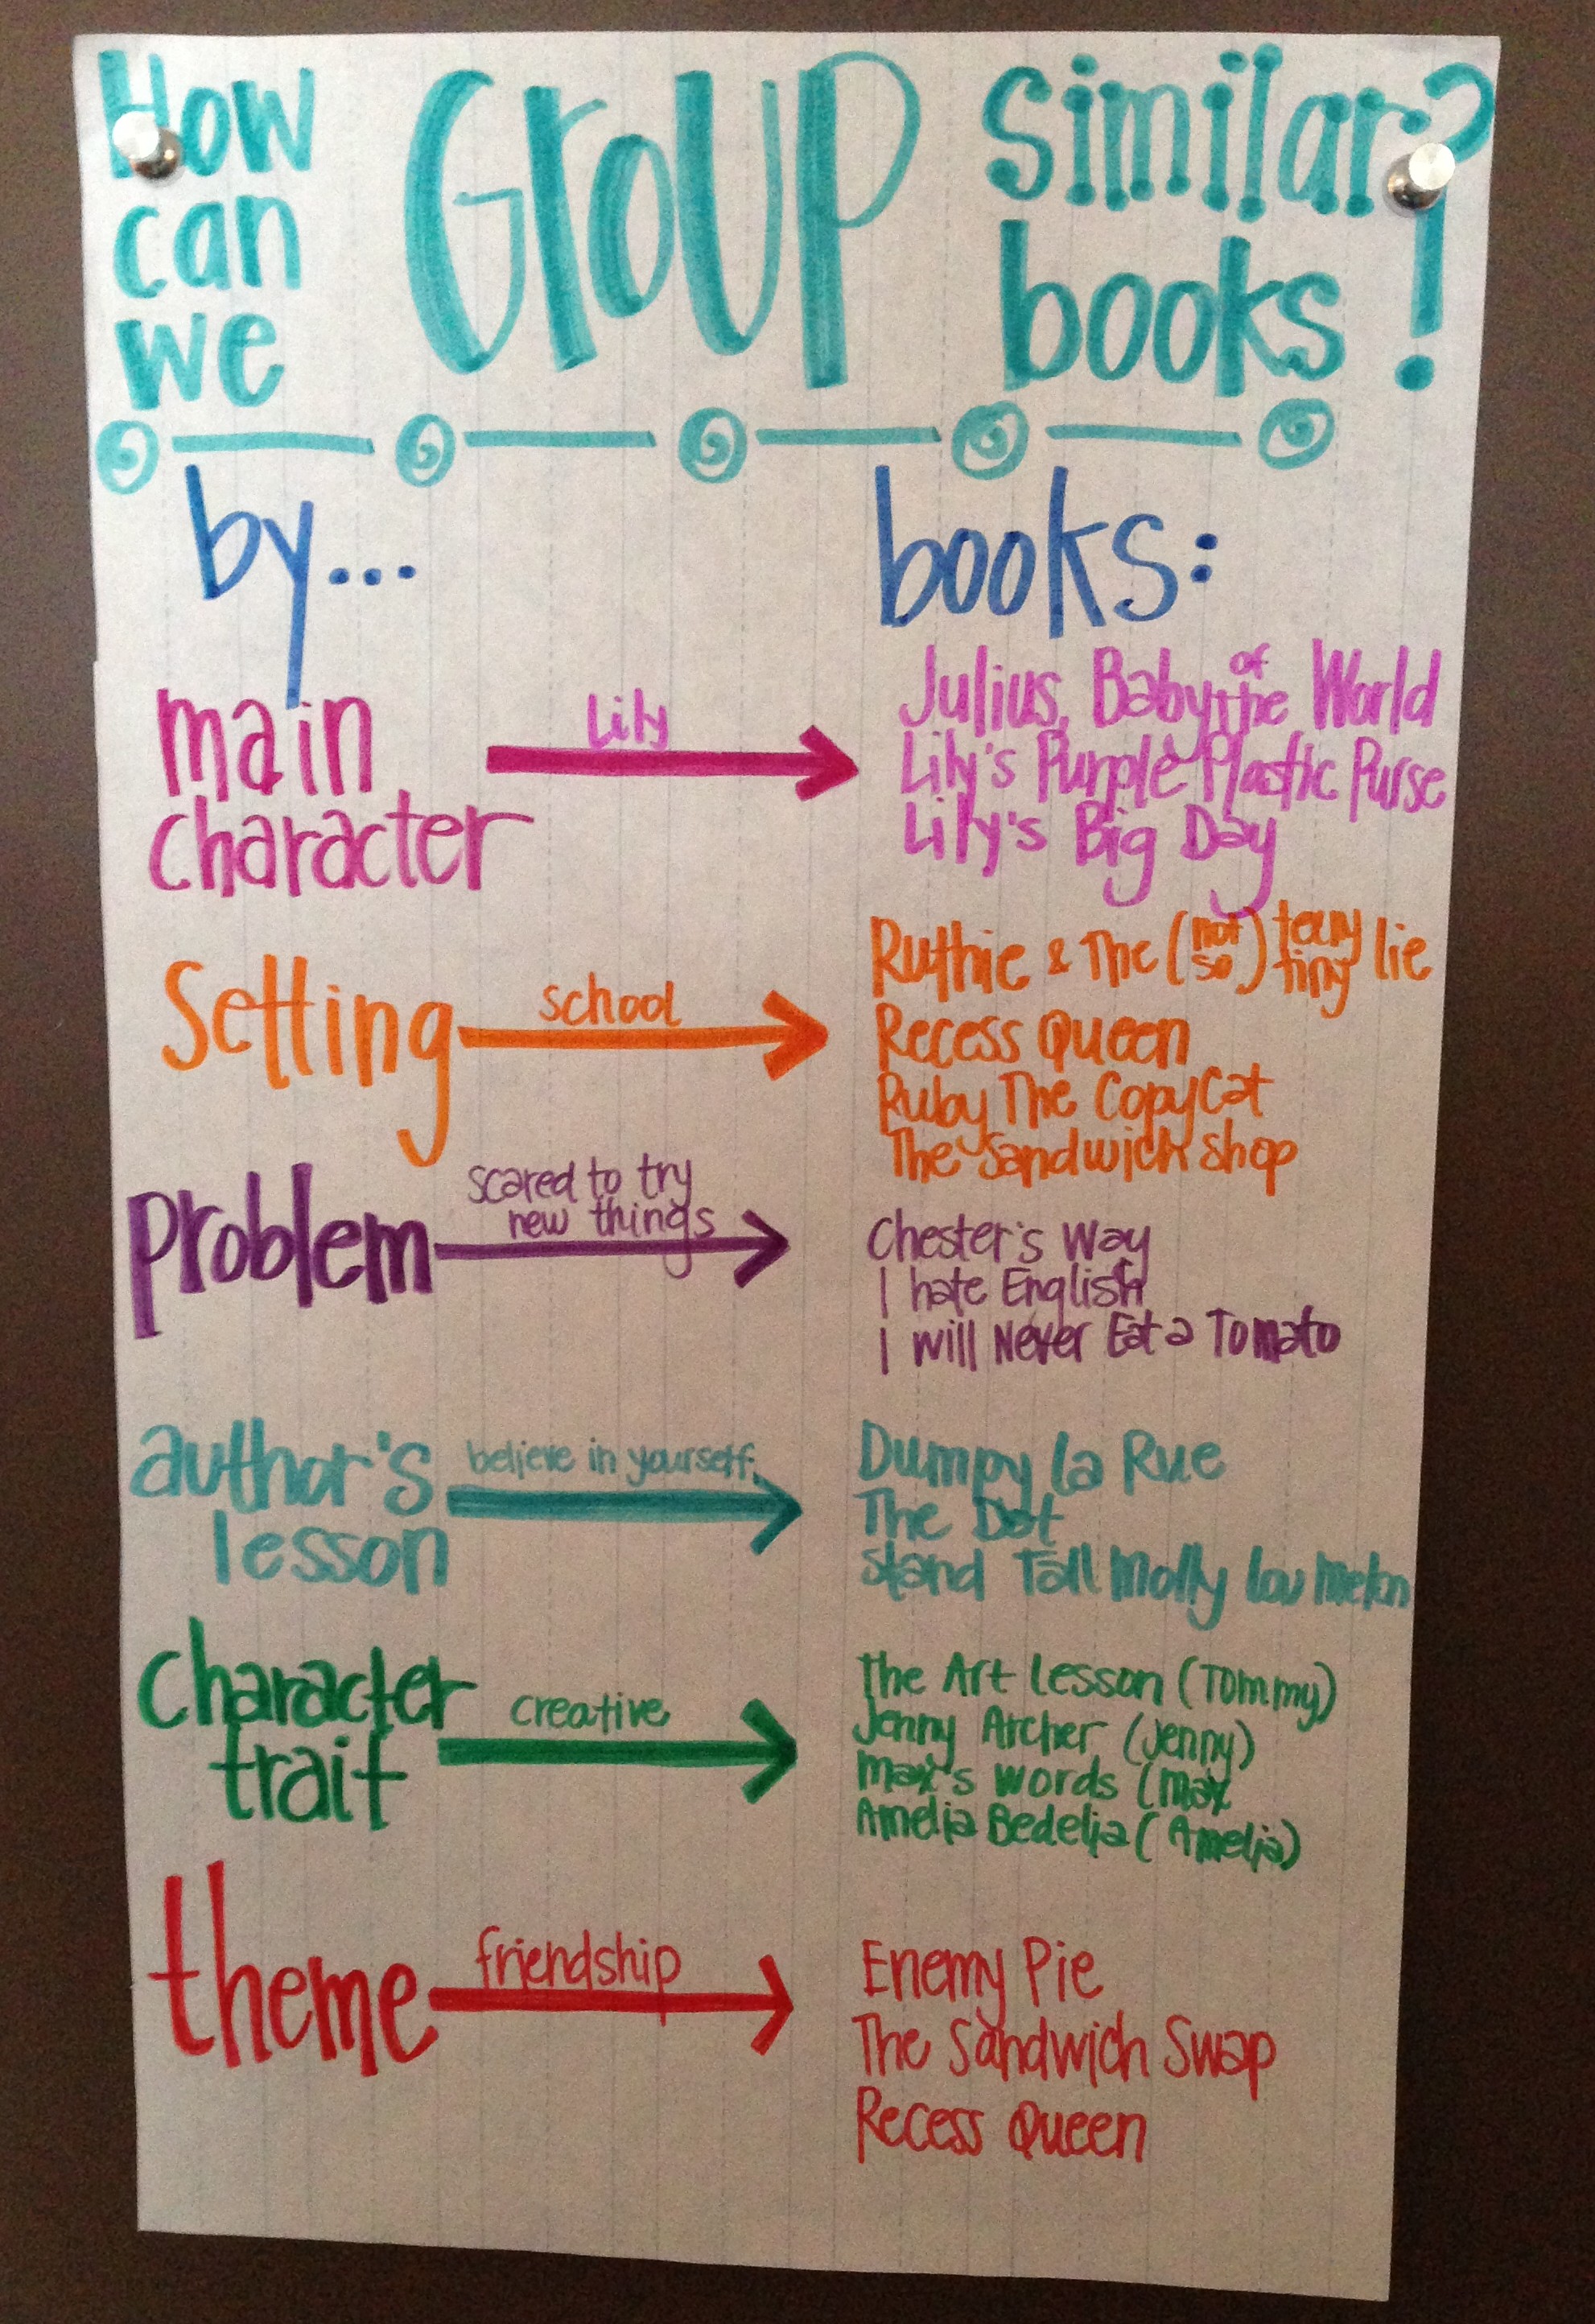 How can we Group similar books?
by... books:
main character
Lily
Julius, Baby of the World
Lily's Purple Plastic Purse
Lily's Big Day
Setting
school
Ruthie & The (not so) teeny tiny lie
Recess Queen
Ruby The CopyCat
The Sandwich Shop
Problem
scared to try
new things
Chester's Way
I hate English
I will Never Eat a Tomato
author's
lesson
believe in yourself
Dumpy La Rue
The Dot
Stand Tall Molly Lou Melon
Character
trait
creative
The Art Lesson (Tommy)
Jenny Archer (Jenny)
Max's words (Max
Amelia Bedelia (Amelia)
theme
friendship
Enemy Pie
The Sandwich Swap
Recess Queen